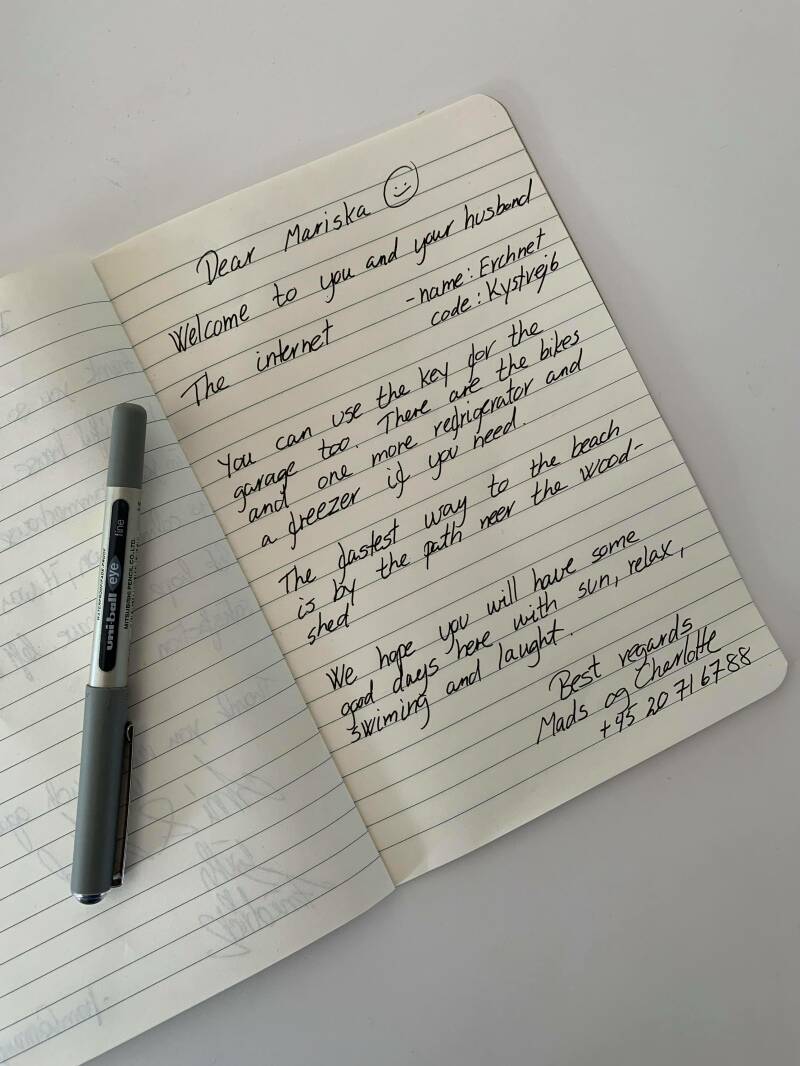 Dear Mariska ☺
Welcome to you and your husband
The internet
-name: Erchnet
code: Kystvej6
You can use the key for the
garage too. There are the bikes
and one more refrigerator and
a freezer if you need.
The fastest way to the beach
is by the path neer the wood-
shed
We hope you will have some
good days here with sun, relax,
swiming and laught.
Best regards
Mads og Charlotte
+45 20 71 67 88
uni-ball eye fine
WATERPROOF/FADE-PROOF
MITSUBISHI PENCIL CO., LTD.